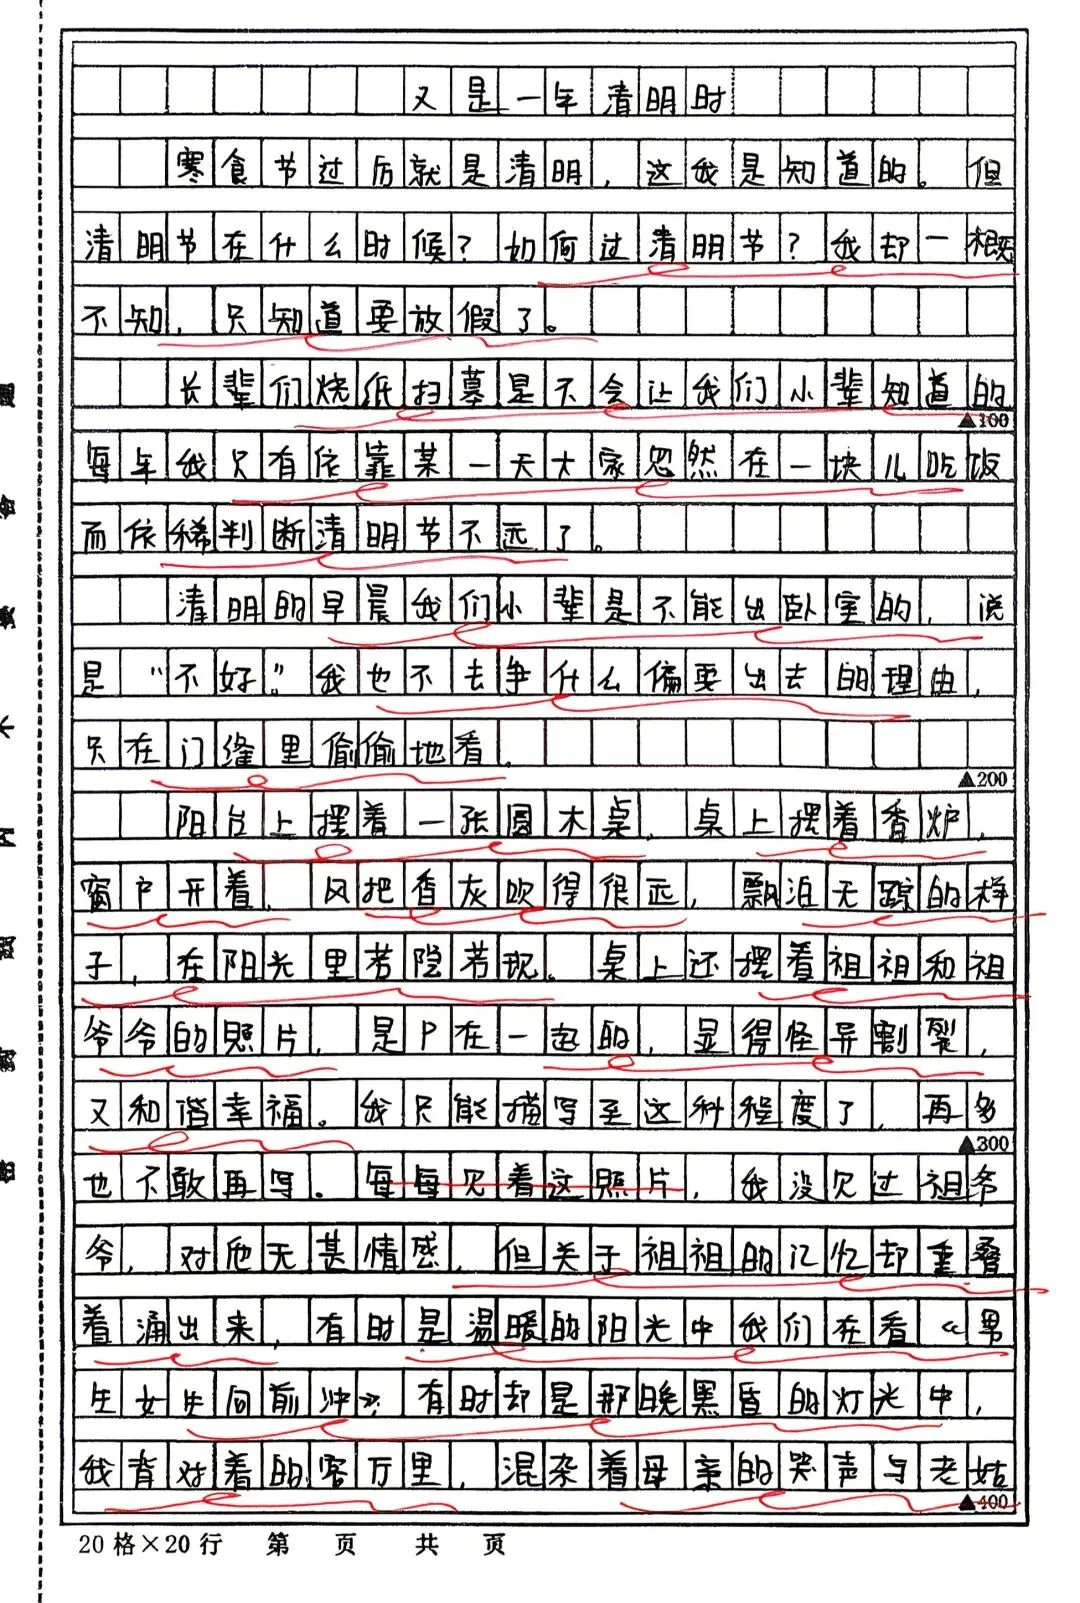 又是一年清明时
寒食节过后就是清明，这我是知道的。但
清明节在什么时候？如何过清明节？我却一概
不知，只知道要放假了。
长辈们烧纸扫墓是不会让我们小辈知道的
▲100
每年我只有依靠某一天大家忽然在一块儿吃饭
而依稀判断清明节不远了。
清明的早晨我们小辈是不能出卧室的，说
是“不好”。我也不去争什么偏要出去的理由，
只在门缝里偷偷地看。
▲200
阳台上摆着一张圆木桌，桌上摆着香炉，
窗户开着，风把香灰吹得很远，飘泊无踪的样
子，在阳光里若隐若现。桌上还摆着祖祖和祖
爷爷的照片，是P在一起的，显得怪异割裂，
又和谐幸福。我只能描写至这种程度了，再多
▲300
也不敢再写。每每见着这照片，我没见过祖爷
爷，对他无甚情感，但关于祖祖的记忆却重叠
着涌出来，有时是温暖的阳光中我们在看《男
生女生向前冲》，有时却是那晚黑昏的灯光中，
我背对着的客厅里，混杂着母亲的哭声与老姑
▲400
20格×20行 第 页 共 页